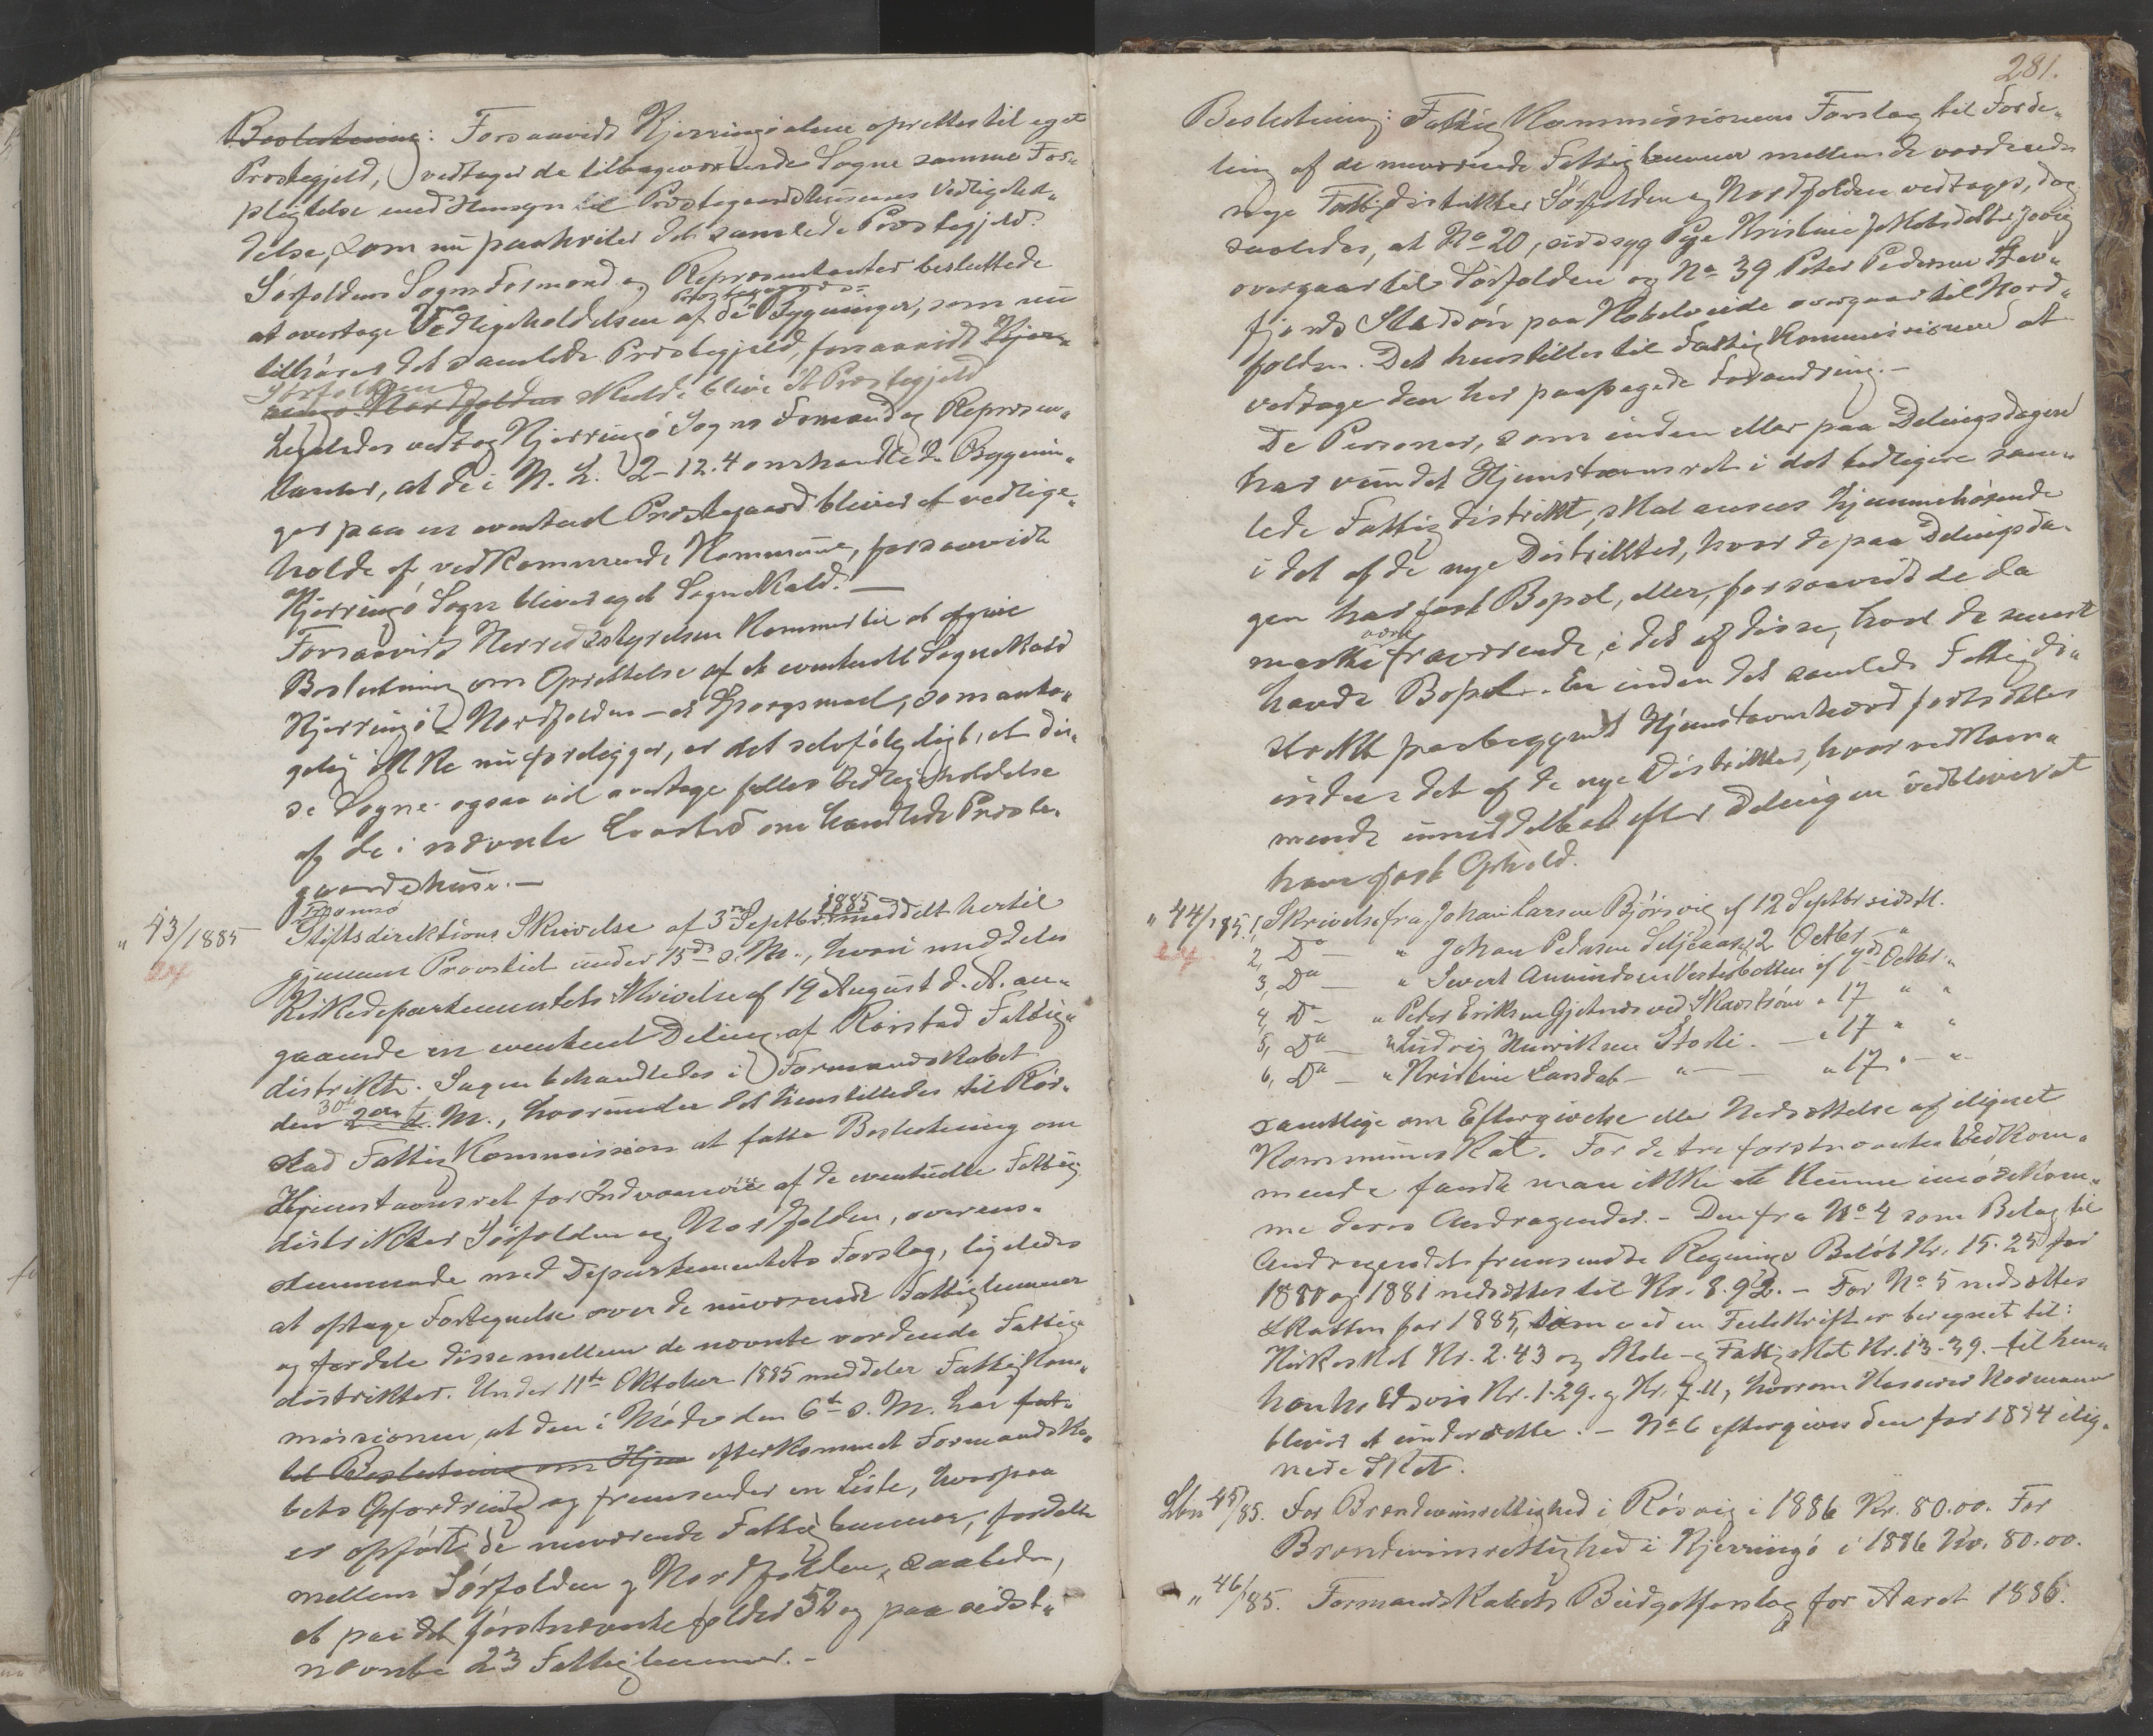 Beslutning: Forsaavidt Kjerringø alene oprettes til eget
Præstegjeld, vedtager de tilbageværende Sogne samme For-
pligtelse med Hensyn til Præstegaardshusenes Vedligehol-
delse, som nu paahviler det samlede Præstegjeld.
Sørfoldens Sogns Formænd og Repræsentanter besluttede
Præstegaards-
at overtage Vedligeholdelsen af de Bygninger, som nu
tilhører det samlede Præstegjeld, forsaavidt Kjer-
Sørfolden
ringø Nordfolden skulde blive et Præstegjeld
Ligeledes vedtog Kjerringø Sogns Formænd og Repræsen-
tanter, at de i N. L. 2-12.4 omhandlede Bygnin-
ger paa en eventuel Præstegaard bliver at vedlige-
holde af vedkommende Kommune, forsaavidt
Kjerringø Sogn bliver eget Sognekald. —
Forsaavidt Herredsstyrelsen kommer til at afgive
Beslutning om Oprettelse af et eventuelt Sognekald
Kjerringø & Nordfolden – et Spørgsmaal, som anta-
gelig ikke nu foreligger, er det selvfølgeligt, at dis-
se Sogne ogsaa vil overtage fælles Vedligeholdelse
af de i nævnte Lovsted omhandlede Præste-
gaardshuse. —
Tromsø
" 43/1885 Stiftsdirektions Skrivelse af 3die Septbr. 1885 meddelt hertil
gjennem Provstiet under 15de s. M., hvori meddeles
Kirkedepartementets Skrivelse af 19 August d. A. an-
gaaende en eventuel Deling af Rørstad Fattig-
distrikt. Sagen behandledes i Formandskabet
30te
den 2den f. M., hvorunder det henstilledes til Rør-
stad Fattigkommission at fatte Beslutning om
Hjemstavnsret for Indvaanere af de eventuelle Fattig-
distrikter Sørfolden og Nordfolden, overens-
stemmende med Departementets Forslag, ligeledes
at optage Fortegnelse over de nuværende Fattiglemmer
og fordele disse mellem de nævnte vordende Fattig-
distrikter. Under 11te Oktober 1885 meddeler Fattigkom-
missionen, at den i Møde den 6te s. M. har fat-
tet Beslutning om Hjem efterkommet Formandska-
bets Opfordring og fremsender en Liste, hvorpaa
er opført de nuværende Fattiglemmer, fordelte
mellem Sørfolden og Nordfolden, saaledes,
at paa det førstnævnte falder 52 og paa sidst-
nævnte 23 Fattiglemmer. –
281.
Beslutning: Fattigkommissionens Forslag til Forde-
ling af de nuværende Fattiglemmer mellem de vordende
nye Fattigdistrikter Sørfolden og Nordfolden vedtages, dog
saaledes, at No 20, sindssyg Pige Kristine Jakobsdatter
overgaar til Sørfolden og No 39 Peter Pedersen
fjords Stedsøn paa Kobelveide overgaar til Nord-
folden. Det henstilles til Fattigkommissionen at
vedtage den her paapegede Forandring. –
De Personer, som inden eller paa Delingsdagen
har vundet Hjemstavnsret i det tidligere sam-
lede Fattigdistrikt, skal ansees hjemmehørende
i det af de nye Distrikter, hvor de paa Delingsda-
gen har fast Bopæl, eller, forsaavidt de da
være
maatte fraværende, i det af disse, hvor de senest
havde Bopæl. En inden det samlede Fattigdi-
strikt paabegyndt Hjemstavnshævd fortsættes
inden det af de nye Distrikter, hvor vedkom-
mende umiddelbart efter Delingen vedbliver at
have fast Ophold.
" 44/1885. 1, Skrivelse fra Johan Larsen Bjørsvig af 12 Septbr sidstl.
2, Do — " Johan Pedersen 2 Octbr "
3, Do — " Sivert Amundsen Vesterbotten af Octbr "
4, Do — " Peder Eriksen Gjetnæs ved " 17 " "
5, Do — " Ludvig Henriksen — " 17 " "
6, Do — " Kristine — " — " 17 " — "
samtlige om Eftergivelse eller Nedsættelse af ilignet
Kommuneskat. For de tre førstnævntes Vedkom-
mende fandt man ikke at kunne imødekom-
me deres Andragender. – Den fra No 4 som Bilag til
Andragendet fremsendte Regnings Beløb Kr. 15.25 for
1880 og 1881 nedsættes til Kr. 8.92. – For No 5 nedsættes
Skatten for 1885, som ved en Feilskrift er beregnet til:
Kirkeskat Kr. 2.43 og Skole- og Fattigskat Kr. 13.39. – til hen-
holdsvis Kr. 1.29. og Kr. 7.11, hvorom Kasserer Normann
bliver at underrette. – No 6 eftergives den for 1884 ilig-
nede Skat.
Lbn 45/85. For Brændevinsrettighed i Røsvig i 1886 Kr. 80.00. For
Brændevinsrettighed i Kjerringø i 1886 Kr. 80.00.
" 46/85. Formandskabets Budgetforslag for Aaret 1886.